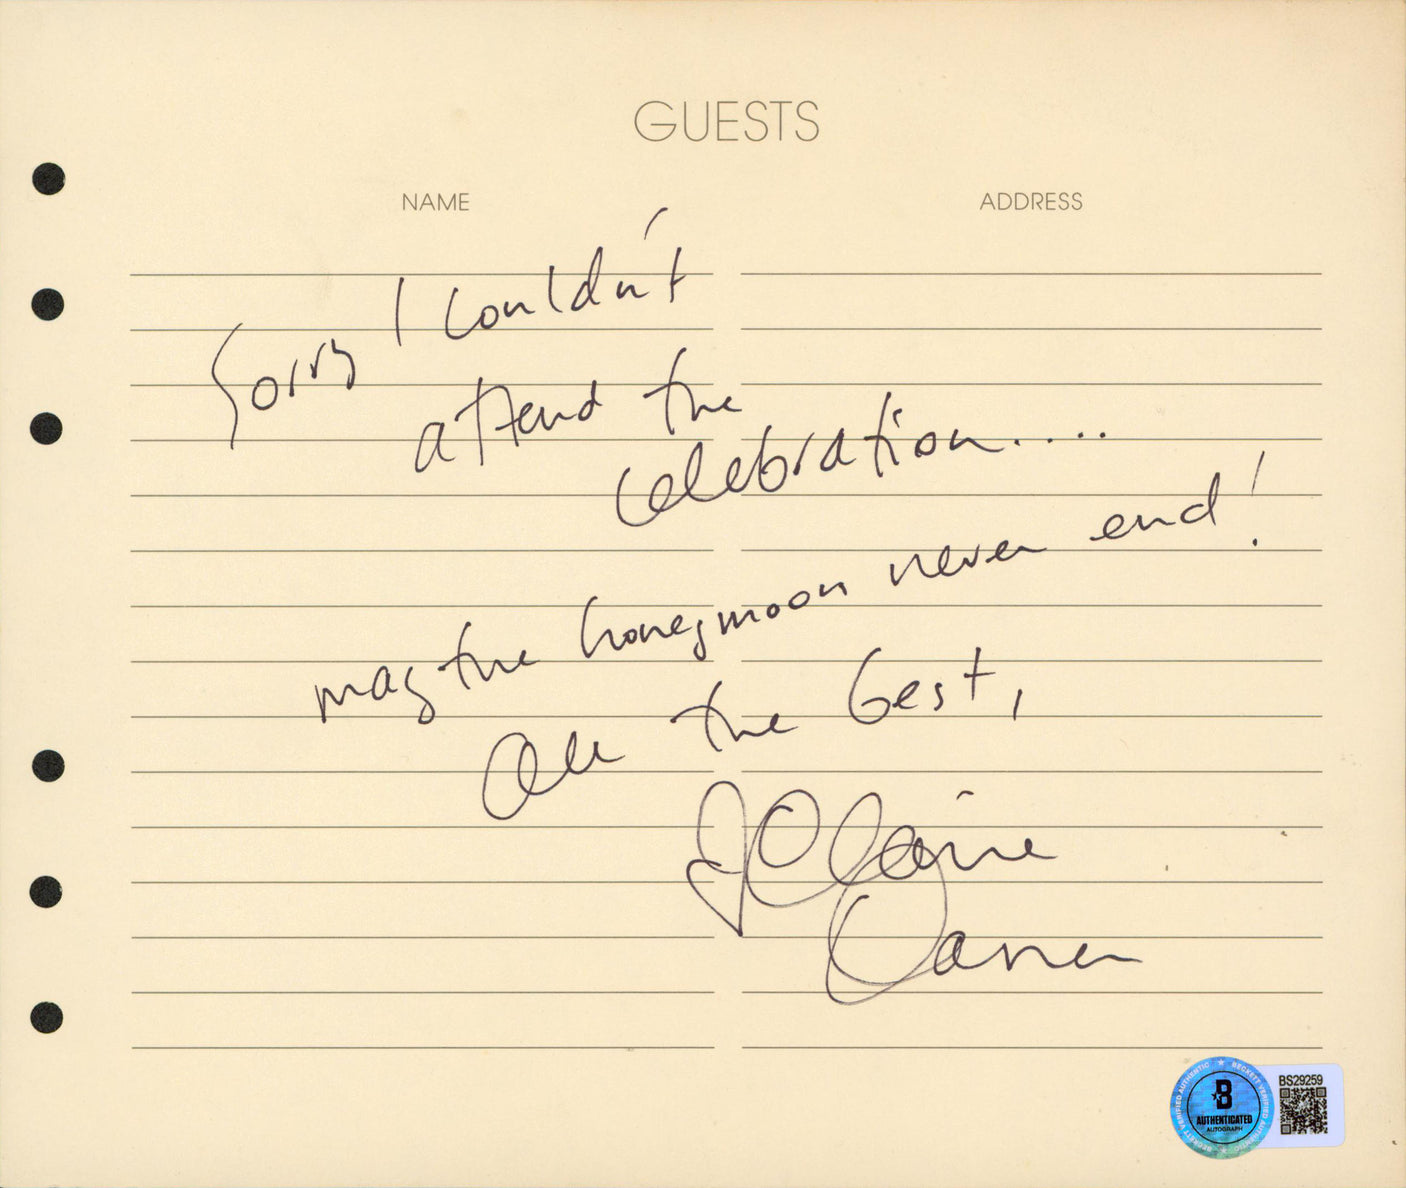 GUESTS
NAME ADDRESS
Sorry I couldn't
attend the
celebration.....
may the honeymoon never end!
All the best,
Elaine
BS29259
BECKETT VERIFIED AUTHENTIC
B
AUTHENTICATED
AUTOGRAPH